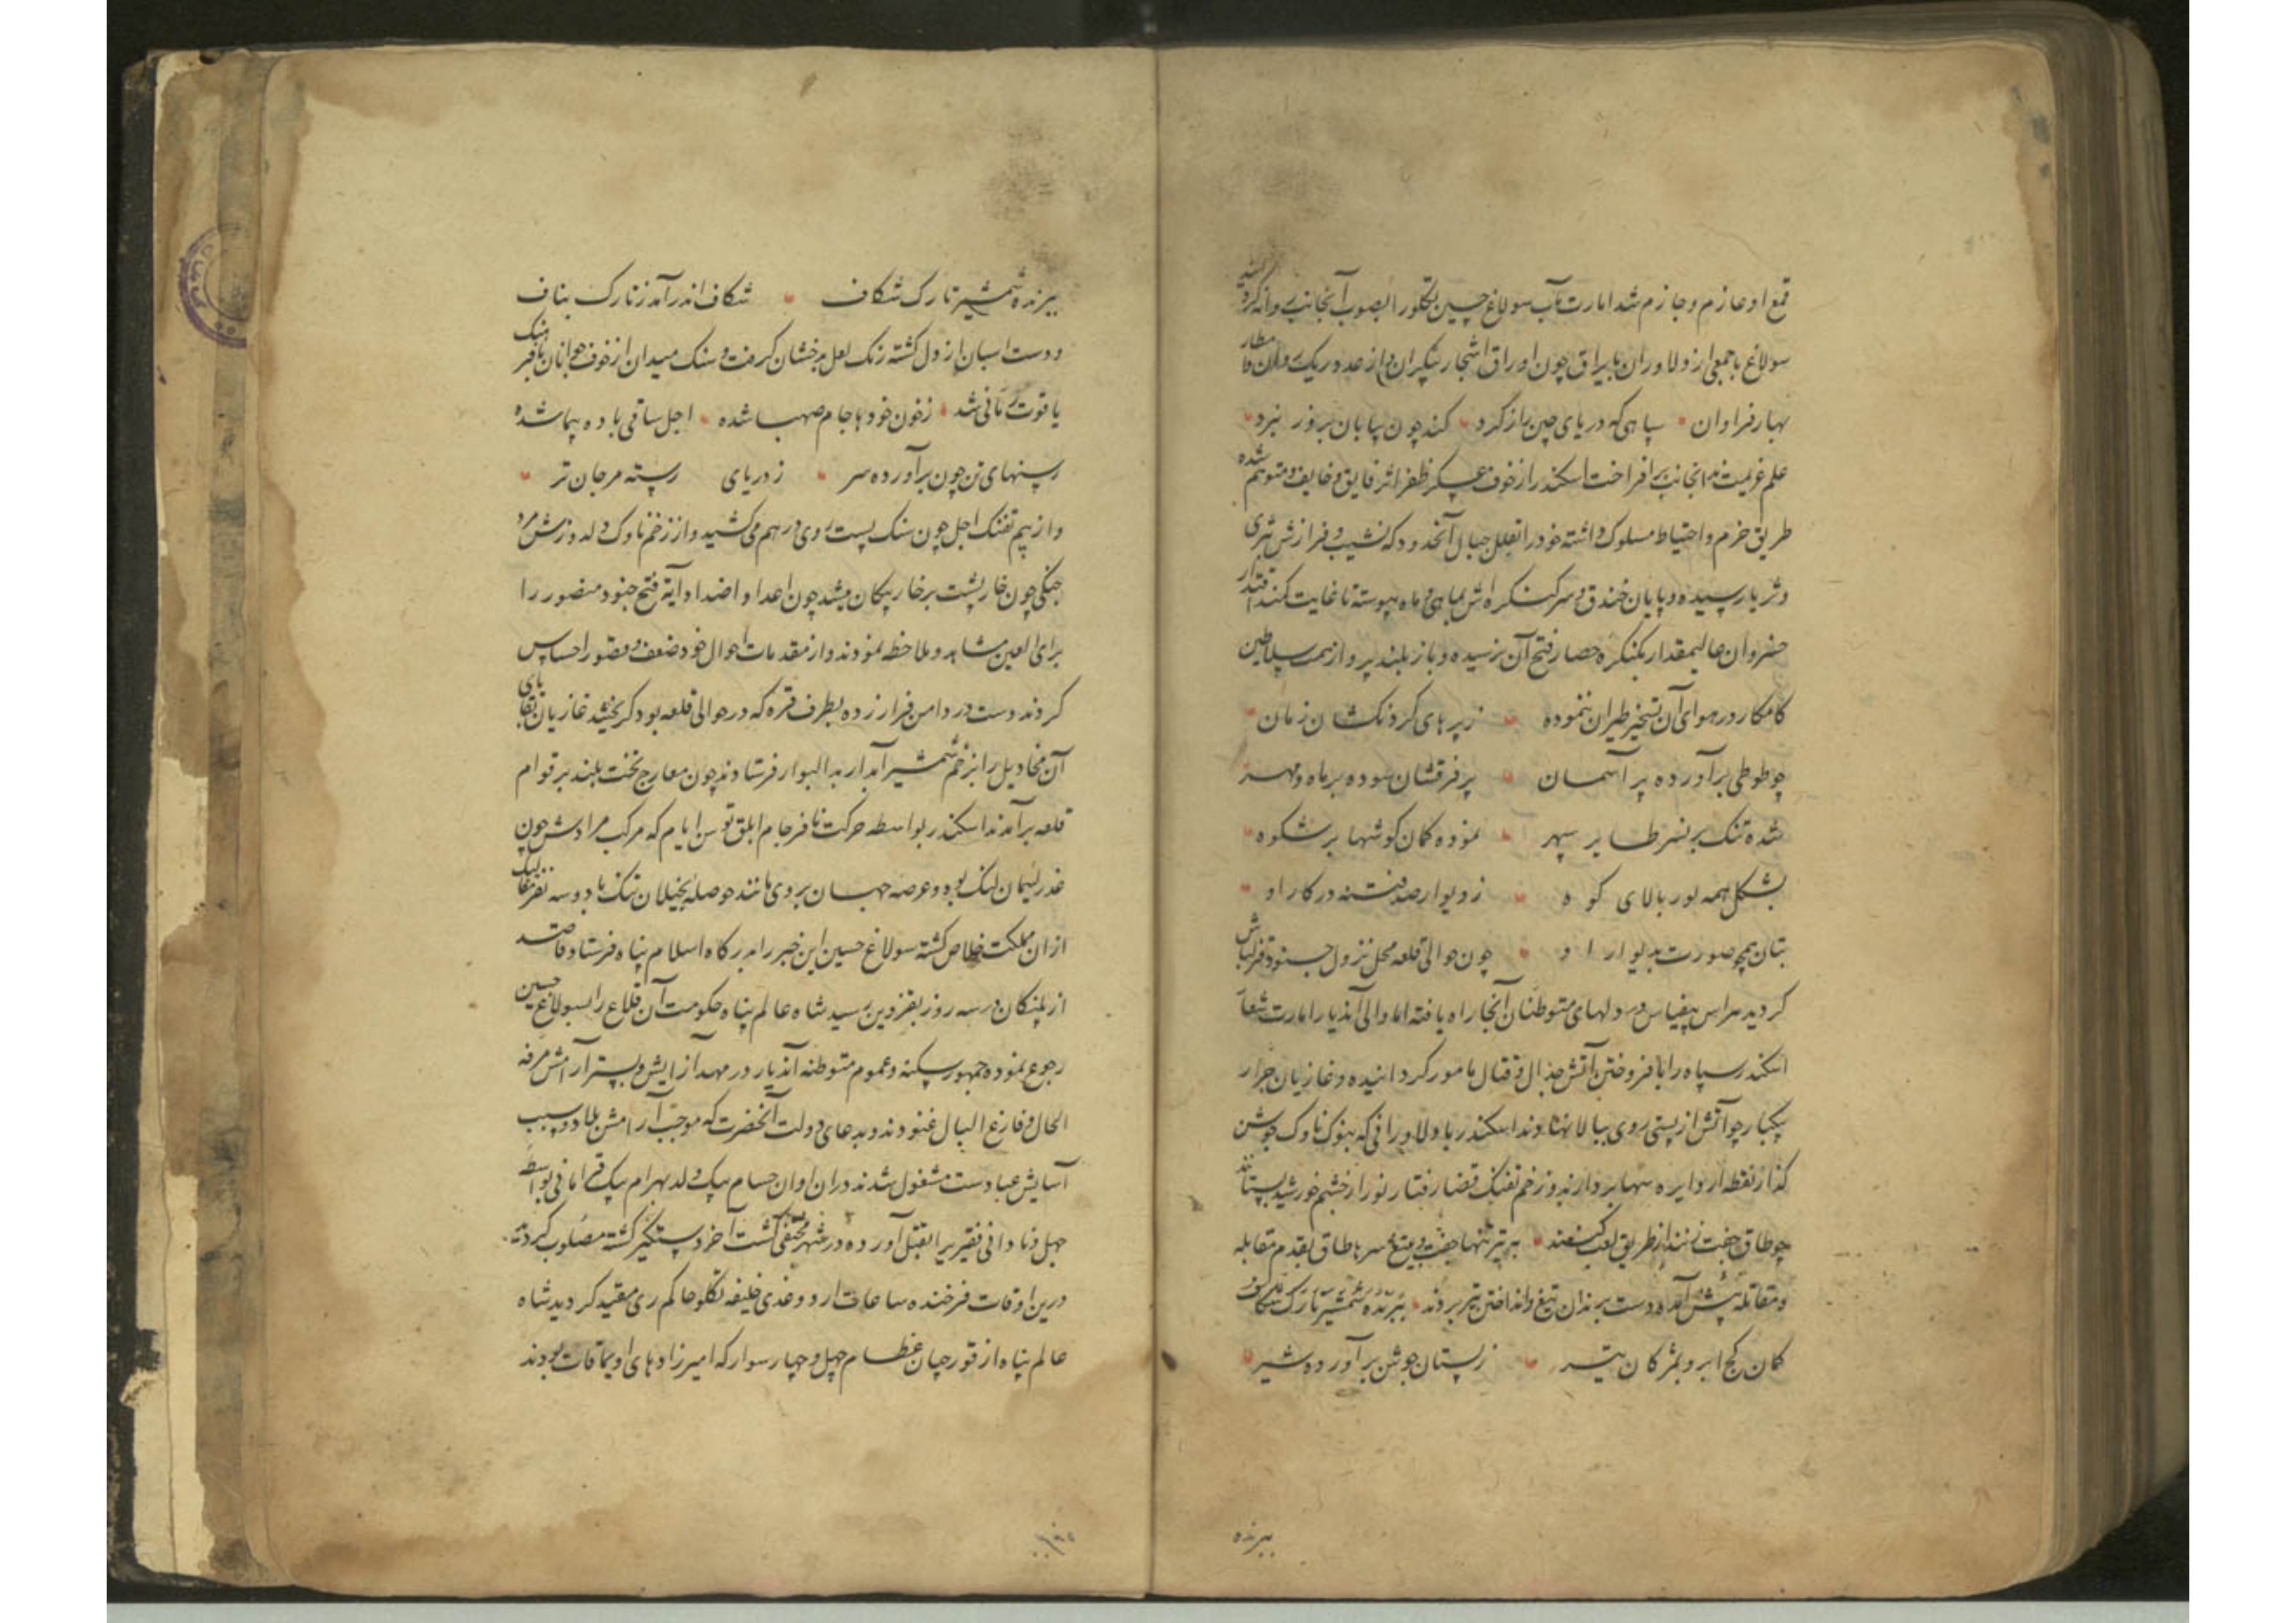 قمع او عازم و جازم شد امارت مآب سولاغ حسین تکلو را بصوب آنجانب روانه کرد
سولاغ با جمعی از دلاوران با یراق چون اوراق اشجار بیکران و از عدد ریک و
بهار فراوان سپاهی که دریای چین راز کرد کند چون بیابان بروز نبرد
علم عزیمت بدانجانب برافراخت اسکندر از خوف عسکر ظفر اثر و خایف و متوهم شده
طریق حزم و احتیاط مسلوک داشته خود را بقلل جبال آنحدود که نشیب و فرازش بثری
و ثریا رسیده و پایان خندق و سر کنکره اش بماهی و ماه پیوسته تا غایت کمند اقتدار
خسروان عالیمقدار بکنکره حصار فتح آن نرسیده و باز بلند پرواز همت سلاطین
کامکار در هوای آن تسخیر طیران ننموده ز پرهای کردنکشان زمان
چو طوطی برآورده پر آسمان پر فرقشان سوده بر ماه و مهر
شده تنک بر نسر طایر سپهر نموده کمان کوشها بر شکوه
بشکل همه نور بالای کوه ز دیوار صد فتنه در کار او
بتان همچو صورت بدیوار او چون حوالی قلعه محل نزول جنود قزلباش
کردید هراس بیقیاس در دلهای متوطنان آنجا راه یافته اما والی آندیار امارت شعار
اسکندر سپاه را بافروختن آتش جدال و قتال مامور کردانیده و غازیان جرار
یکبار چو آتش از پستی روی ببالا نهادند اسکندر با دلاورانی که بنوک ناوک جوشن
کذار نقطه از دایره سها بردارند و زخم تفنک قضا رفتار نور از چشم خورشید بستانند
چو طاق جفت زنند از طریق لعب کمند به تیر تنها جفت و بتیغ سرها طاق بقدم مقابله
و مقاتله پیش آمده دست بر ندان تیغ و انداختن تیر بردند ببرنده شمشیر تارک شکاف
کمان کج ابرو بمژکان تیر ز پستان جوشن برآورده شیر
ببرنده
ببرنده شمشیر تارک شکاف شکاف اندر آمد ز تارک بناف
و دست اسبان از دل کشته رنک لعل بدخشان کرفت و سنک میدان از خوف جوانان
یاقوت رمانی شد ز خون خودها جام صهبا شده اجل ساقی باده پیما شده
رسنهای تن چون برآورده سر ز دریای رسته مرجان تر
و از بیم تفنک اجل چون سنک پست روی درهم می کشید و از زخم ناوک دلدوزش مرد
جنکی چون خارپشت بر خار پیکان میشد چون اعدا و اضداد آیة فتح جنود منصور را
برای العین مشاهده و ملاحظه نمودند و از مقدمات احوال خود ضعف و قصور احساس
کردند دست در دامن فرار زده بطرف قره که در حوالی قلعه بود کریختند غازیان
آن مخاذیل را بزخم شمشیر آبدار بدار البوار فرستادند چون معارج بخت بلند بر قوام
قلعه برآمدند اسکندر بواسطه حرکت نافرجام ابلق توسن ایام که مرکب مرادش چون
عذر لئیمان لنک بود و عرصه جهان بر وی مانند حوصله بخیلان تنک با دو سه نفر
ازان مملکت خلاص کشته سولاغ حسین این خبر را بدرکاه اسلام پناه فرستاد قاصد
از پلنکان در سه روز بقزوین رسید شاه عالم پناه حکومت آن قلاع را بسولاغ حسین
رجوع نموده جمهور سکنه و عموم متوطنه آندیار در مهد آزایش و بستر آرامش مرفه
الحال و فارغ البال غنودند و بدعای دولت آنحضرت که موجب آرامش بلاد و سبب
آسایش عبادست مشغول شدند دران اوان حسام بیک ولد بهرام بیک قرامانی بواسطه
جهل و نادانی فقیریرا بقتل آورده در شهر مختفی کشت آخر دستکیر کشته مصلوب کردید
درین اوقات فرخنده ساعات اردوغدی خلیفه تکلو حاکم ری مقید کردید شاه
عالم پناه از قورچیان عظام چهل و چهار سوار که امیرزادهای اویماقات بودند